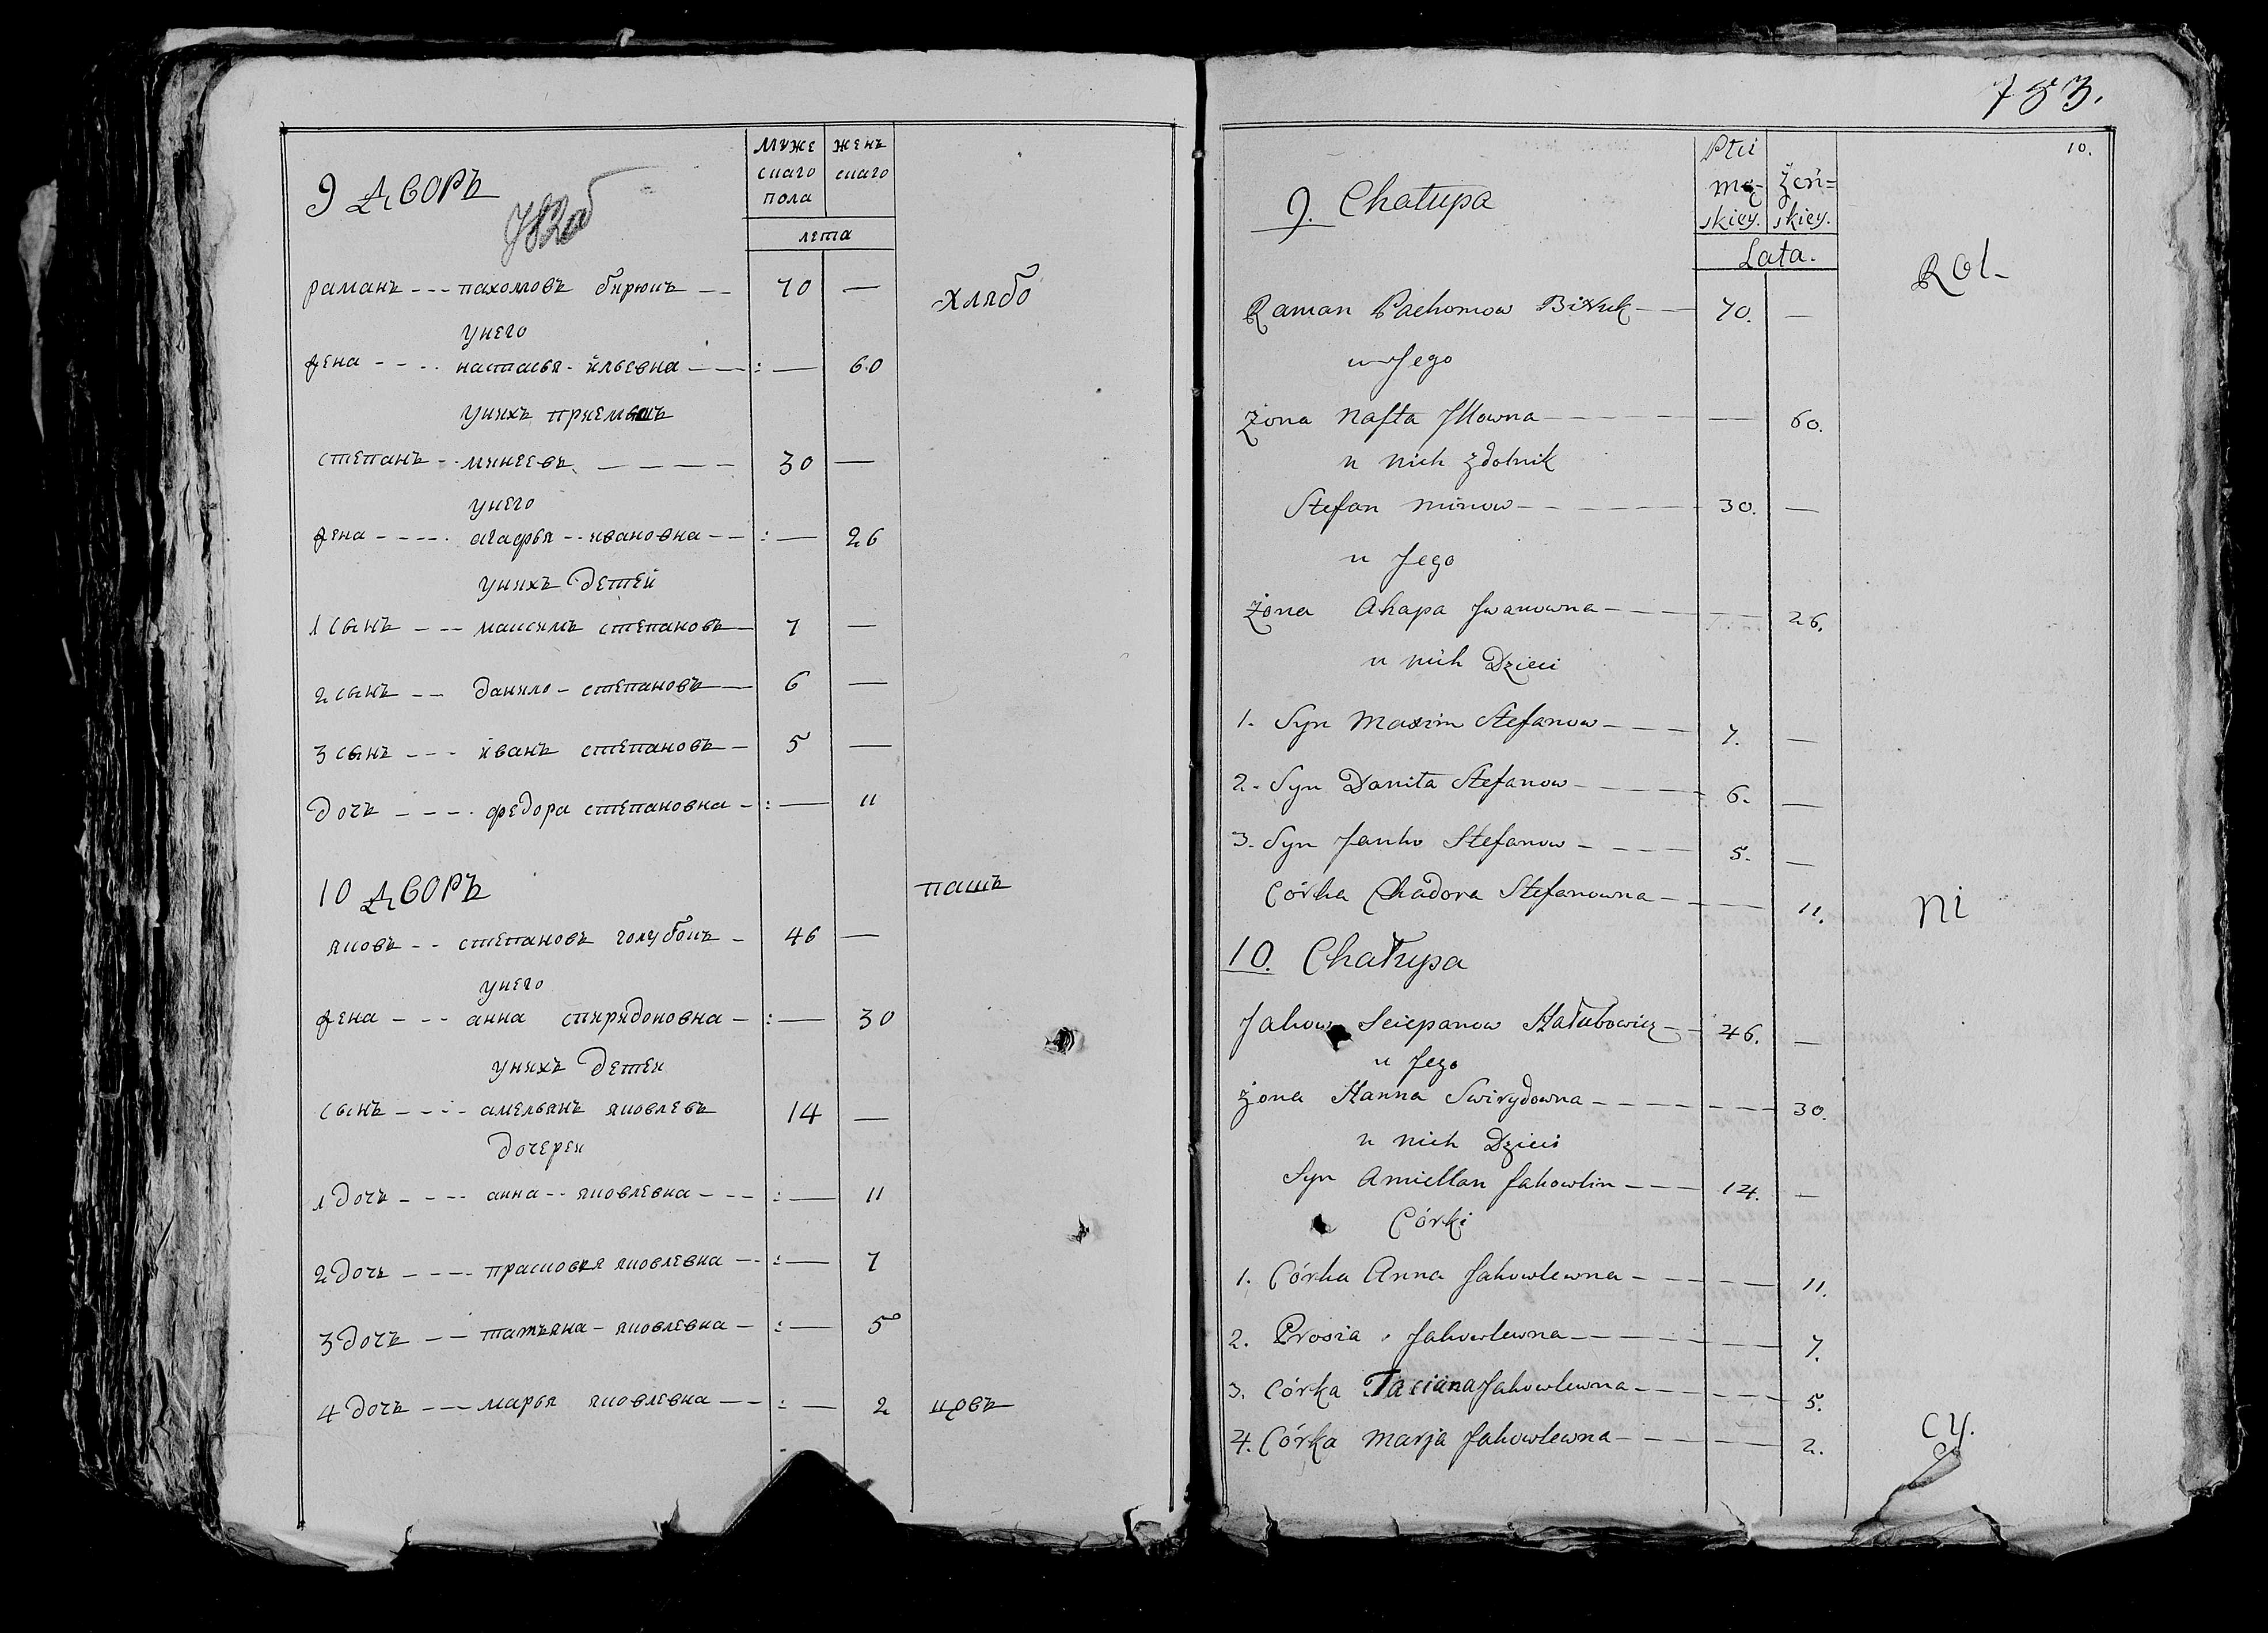 783.
10.
9 дворъ
муже
скаго
пола
женъ
скаго
лета
раманъ --- пахомовъ бирюкъ — 70 —
хлябо
унего
жена ---- настасья - ильевна — :— 60
унихъ приемышъ
степанъ -- минеевъ ---- 30 —
унего
жена ---- агафья -- ивановна -- :— 26
унихъ детей
1 сынъ --- максимъ степановъ — 7 —
2 сынъ -- данило - степановъ — 6 —
3 сынъ --- иванъ степановъ - 5 —
дочь ---- федора степановна - :— 11
10 дворъ
пашъ
яковъ -- степановъ голубокъ - 46 —
унего
жена --- анна спиридоновна - :— 30
унихъ детеи
сынъ ---- амельянъ яковлевъ 14 —
дочереи
1 дочь ---- анна -- яковлевна --- :— 11
2 дочь ---- прасковья яковлевна -- :— 7
3 дочь -- татьяна - яковлевна - :— 5
4 дочь --- марья яковлевна -- :— 2 цовъ
9. Chałupa
Płci
mę-
skiey.
żeń=
skiey.
Lata.
Rol-
Raman Pachomow Biruk — 70. —
u Jego
Żona Nasta Jllowna ---- — 60.
u nich Zdolnik
Stefan Minow ----- 30. —
u Jego
Żona Ahapa Jwanowna --- — 26.
u nich Dzieci
1. Syn Maxim Stefanow --- 7. —
2. Syn Daniła Stefanow ---- 6. —
3. Syn Janko Stefanow ---- 5. —
Córka Chadora Stefanowna --- 11.
ni
10. Chałupa
Jakow Sciepanow Hałubowicz -- 46. —
u Jego
Żona Hanna Swirydowna ------ 30.
u nich Dzieci
Syn Amiellan Jakowlin --- 14. —
Córki
1. Córka Anna Jakowlewna ----- 11.
2. Prosia Jakowlewna ------ 7.
3. Córka Taciana Jakowlewna ----- 5.
4. Córka Marja Jakowlewna ---- 2.
cy.